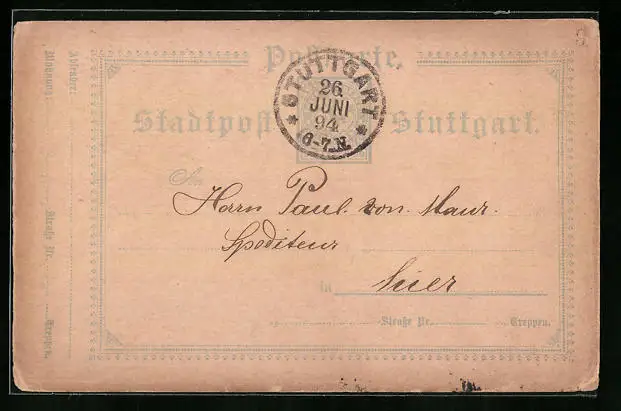 Postkarte.
STUTTGART
26
JUNI
94
6-7 N.
Stadtpost Stuttgart.
An
Herrn Paul von Maur.
Spediteur
in hier
Straße Nr. Treppen.
Absender:
Wohnung:
Straße Nr.
Treppen.